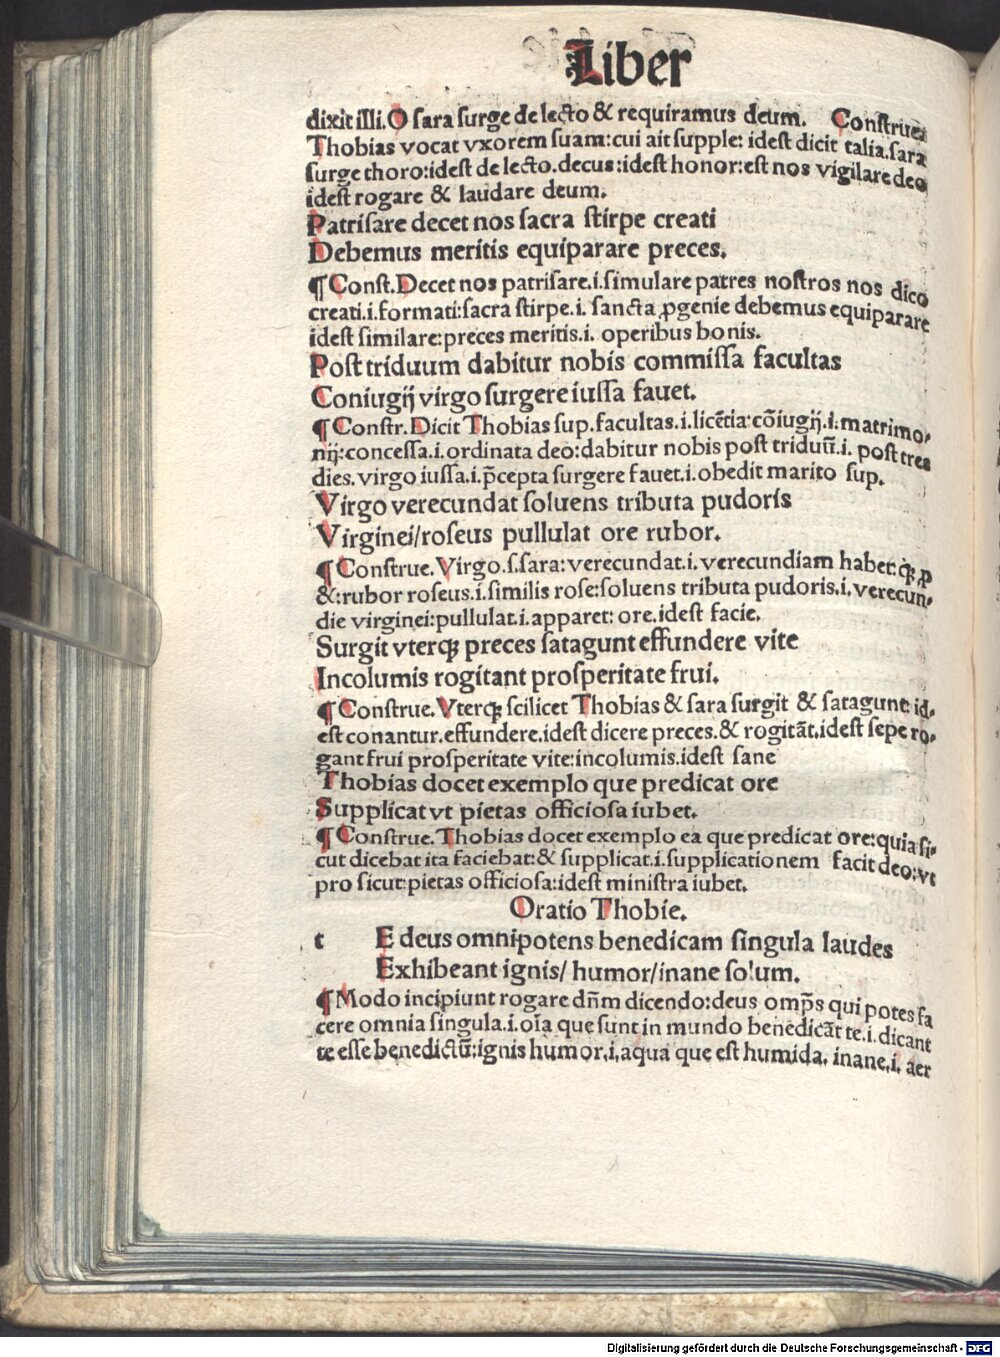 Liber
dixit illi. O sara surge de lecto & requiramus deum. Construe.
Thobias vocat vxorem suam: cui ait supple: idest dicit talia. sara
surge thoro: idest de lecto. decus: idest honor: est nos vigilare deo
idest rogare & laudare deum.
Patrisare decet nos sacra stirpe creati
Debemus meritis equiparare preces.
¶ Const. Decet nos patrisare .i. simulare patres nostros nos dico
creati .i. formati: sacra stirpe .i. sancta ꝓgenie debemus equiparare
idest similare: preces meritis .i. operibus bonis.
Post triduum dabitur nobis commissa facultas
Coniugij virgo surgere iussa fauet.
¶ Constr. Dicit Thobias sup. facultas .i. licētia: cōiugij .i. matrimo-
nij: concessa .i. ordinata deo: dabitur nobis post triduū .i. post tres
dies. virgo iussa .i. p̄cepta surgere fauet .i. obedit marito sup.
Virgo verecundat soluens tributa pudoris
Virginei/ roseus pullulat ore rubor.
¶ Construe. Virgo .s. sara: verecundat .i. verecundiam habet: ꝙ̄ ꝓ
&: rubor roseus .i. similis rose: soluens tributa pudoris .i. verecun-
die virginei: pullulat .i. apparet: ore. idest facie.
Surgit vterqꝫ preces satagunt effundere vite
Incolumis rogitant prosperitate frui.
¶ Construe. Vterqꝫ scilicet Thobias & sara surgit & satagunt: id-
est conantur. effundere. idest dicere preces. & rogitāt. idest sepe ro-
gant frui prosperitate vite: incolumis. idest sane
Thobias docet exemplo que predicat ore
Supplicat vt pietas officiosa iubet.
¶ Construe. Thobias docet exemplo ea que predicat ore: quia si-
cut dicebat ita faciebat: & supplicat .i. supplicationem facit deo: vt
pro sicut: pietas officiosa: idest ministra iubet.
Oratio Thobie.
t E deus omnipotens benedicam singula laudes
Exhibeant ignis/ humor/ inane solum.
¶ Modo incipiunt rogare dn̄m dicendo: deus omp̄s qui potes fa
cere omnia singula .i. oīa que sunt in mundo benedicāt te .i. dicant
te esse benedictū: ignis humor .i. aqua que est humida. inane .i. aer
Digitalisierung gefördert durch die Deutsche Forschungsgemeinschaft - DFG